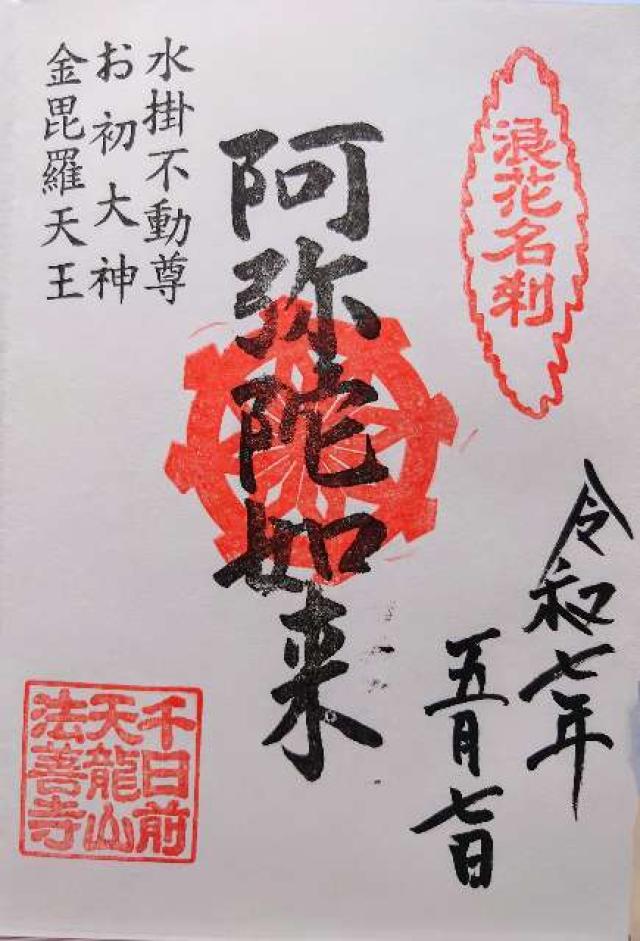 浪花名刹
令和七年
五月七日
阿弥陀如来
水掛不動尊
お初大神
金毘羅天王
千日前
天龍山
法善寺